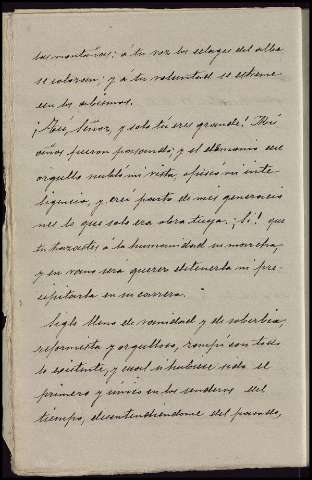 las montañas; á tu voz los celages del alba
se coloran; y a tu voluntad se estreme-
cen los abismos.
¡Ah! Señor, y solo tú eres grande! Mis
años fueron pasando; y el demonio del
orgullo nubló mi vista, ofuscó mi inte-
ligencia, y creí parto de mis generacio
nes lo que solo era obra tuya. ¡Si! que
tu trazastes á la humanidad su marcha,
y en vano será querer detenerla ni pre-
cipitarla en su carrera.
Siglo lleno de vanidad y de soberbia,
reformista y orgulloso, rompí con todo
lo existente, y cual si hubiese sido el
primero y único en los senderos del
tiempo, desentendiéndome del pasado,